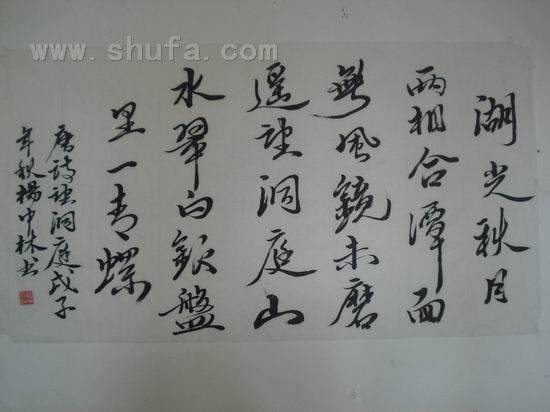 www.shufa.com
湖光秋月
两相合潭面
無風鏡未磨
遥望洞庭山
水翠白銀盤
里一青螺
唐詩望洞庭戊子
年秋楊中林书